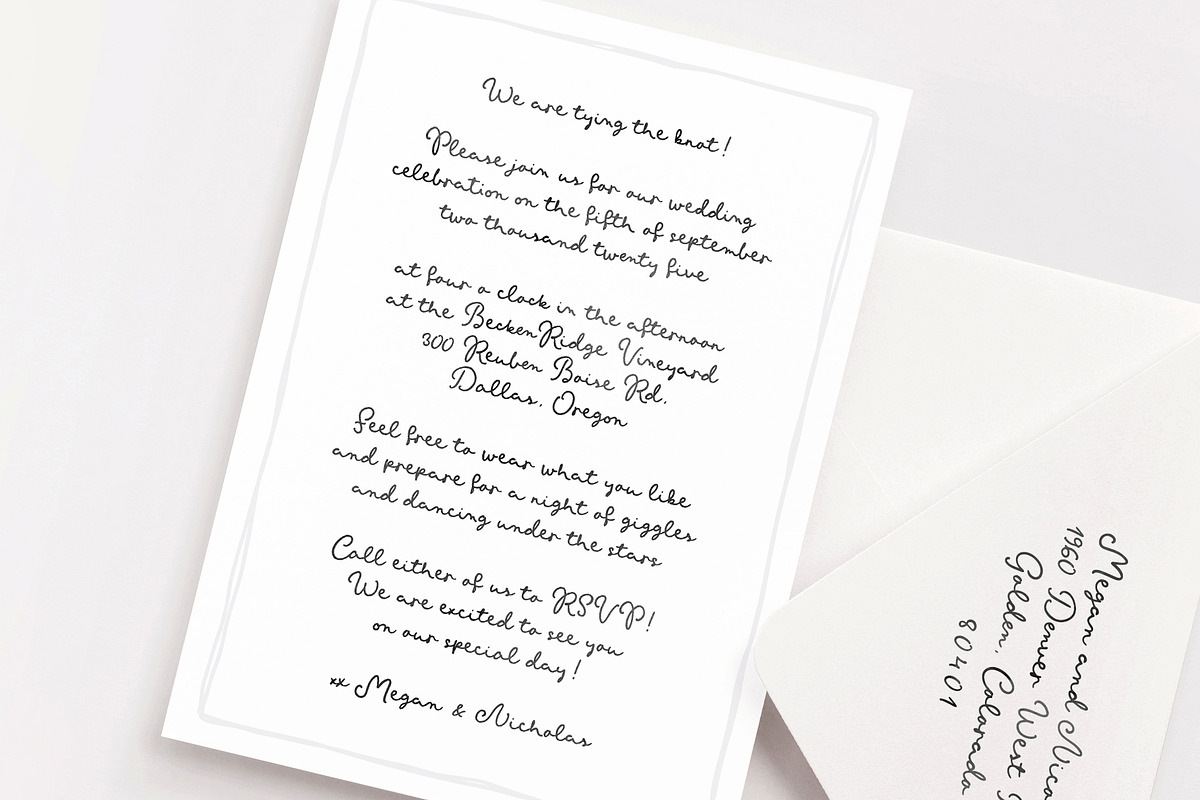 We are tying the knot!
Please join us for our wedding
celebration on the fifth of september
two thousand twenty five
at four o clock in the afternoon
at the BeckenRidge Vineyard
300 Reuben Boise Rd.
Dallas, Oregon
Feel free to wear what you like
and prepare for a night of giggles
and dancing under the stars
Call either of us to RSVP!
We are excited to see you
on our special day!
xx Megan & Nicholas
Megan and
1960 Denver West
Golden, Colorado
80401